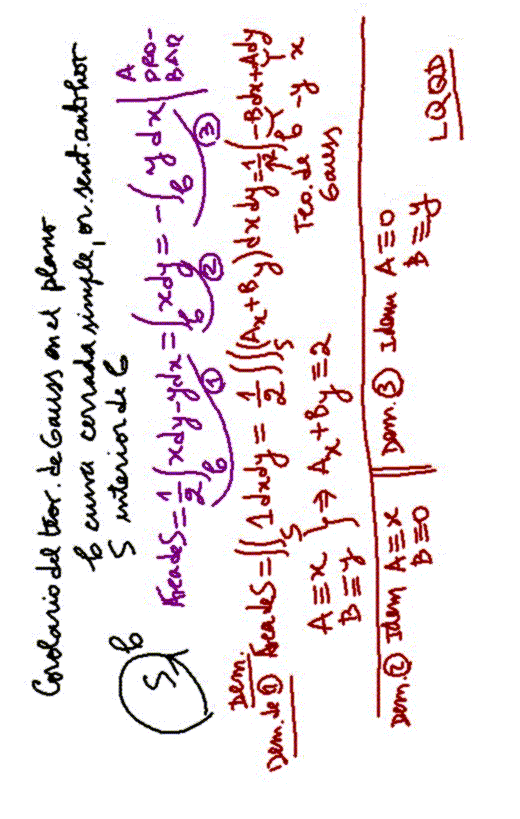 Corolario del teor. de Gauss en el plano
b curva cerrada simple, or. sent. antihor
S interior de b
S b
Área de S = 1/2 ∫_b xdy-ydx = ∫_b xdy = -∫_b ydx | A PRO-BAR
① ② ③
Dem.
Dem. de ① Área de S = ∬_S 1 dxdy = 1/2 ∬_S (Ax+By) dxdy = 1/2 ∫_b -Bdx+Ady
-y x
Teo. de Gauss
A≡x
B≡y } ⇒ Ax+By≡2
Dem. ② Idem A≡x
B≡0
Dem. ③ Idem A≡0
B≡y
LQQD